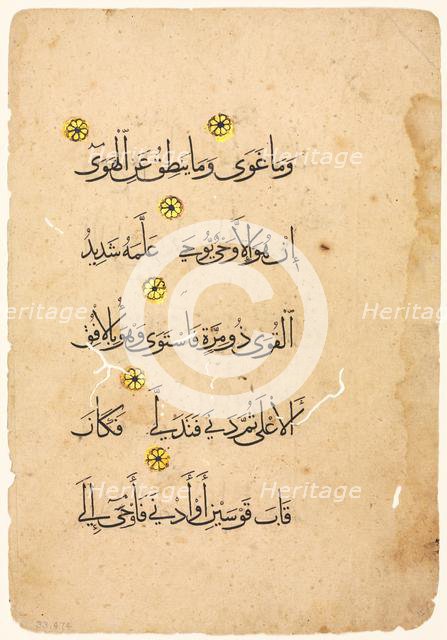 وَمَا غَوَى وَمَا يَنطِقُ عَنِ الْهَوَىٰ
إِنْ هُوَ إِلَّا وَحْيٌ يُوحَى عَلَّمَهُ شَدِيدُ
الْقُوَى ذُو مِرَّةٍ فَاسْتَوَى وَهُوَ بِالْأُفُقِ
الْأَعْلَى ثُمَّ دَنَى فَتَدَلَّى فَكَانَ
قَابَ قَوْسَيْنِ أَوْ أَدْنَى فَأَوْحَىٰ إِلَى
Heritage Heritage
Heritage Heritage Heritage
Heritage Heritage
33.474